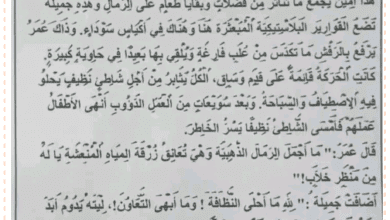 هَذَا أَمِينٌ يَجْمَعُ مَا تَنَاثَرَ مِنْ فَضَلَاتٍ وَبَقَايَا طَعَامٍ عَلَى الرِّمَالِ وَهَذِهِ جَمِيلَةُ
تَضَعُ القَوَارِيرَ البِلَاسْتِيكِيَّةَ المُبَعْثَرَةَ هُنَا وَهُنَاكَ فِي أَكْيَاسٍ سَوْدَاءَ. وَذَاكَ عُمَرُ
يَرْفَعُ بِالرَّفْشِ مَا تَكَدَّسَ مِنْ عُلَبٍ فَارِغَةٍ وَيُلْقِي بِهَا بَعِيدًا فِي حَاوِيَةٍ كَبِيرَةٍ.
كَانَتْ الحَرَكَةُ قَائِمَةً عَلَى قَدَمٍ وَسَاقٍ، الكُلُّ يُثَابِرُ مِنْ أَجْلِ شَاطِئٍ نَظِيفٍ يَحْلُو
فِيهِ الاِصْطِيَافُ وَالسِّبَاحَةُ. وَبَعْدَ سُوَيْعَاتٍ مِنَ العَمَلِ الدَّؤُوبِ أَنْهَى الأَطْفَالُ
عَمَلَهُمْ فَأَمْسَى الشَّاطِئُ نَظِيفًا يَسُرُّ الخَاطِرَ.
قَالَ عُمَرُ:" مَا أَجْمَلَ الرِّمَالَ الذَّهَبِيَّةَ وَهْيَ تُعَانِقُ زُرْقَةَ المِيَاهِ المُنْعِشَةِ يَا لَهُ
مِنْ مَنْظَرٍ خَلَّابٍ!"
أَضَافَتْ جَمِيلَةُ :" لِلهِ مَا أَحْلَى النَّظَافَةَ ! وَمَا أَبْهَى التَّعَاوُنَ!، لَيْتَهُ يَدُومُ أَبَدَ